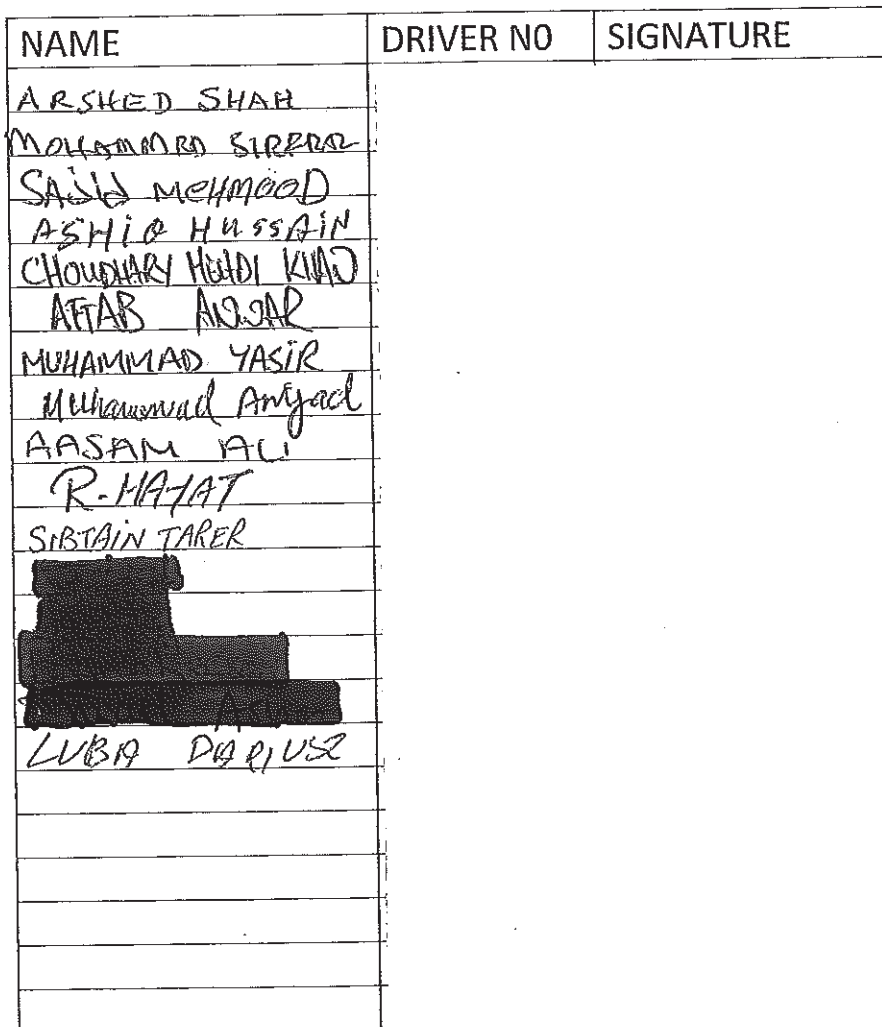 NAME DRIVER NO SIGNATURE
ARSHED SHAH
MOHAMMAD
SAJID MEHMOOD
ASHIQ HUSSAIN
CHOUDHARY MEHDI KHAN
AFTAB ANWAR
MUHAMMAD YASIR
Muhammad Amjad
AASAM ALI
R-HAYAT
SIBTAIN TARER
LUBA DARIUSZ